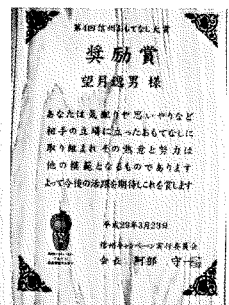 第4回信州おもてなし大賞
奨励賞
望月逸男 様
あなたは気配りや思いやりなど
相手の立場に立ったおもてなしに
取り組まれその熱意と努力は
他の模範となるものであります
よって今後の活躍を期待しこれを賞します
平成29年3月23日
信州キャンペーン実行委員会
会長 阿部 守一